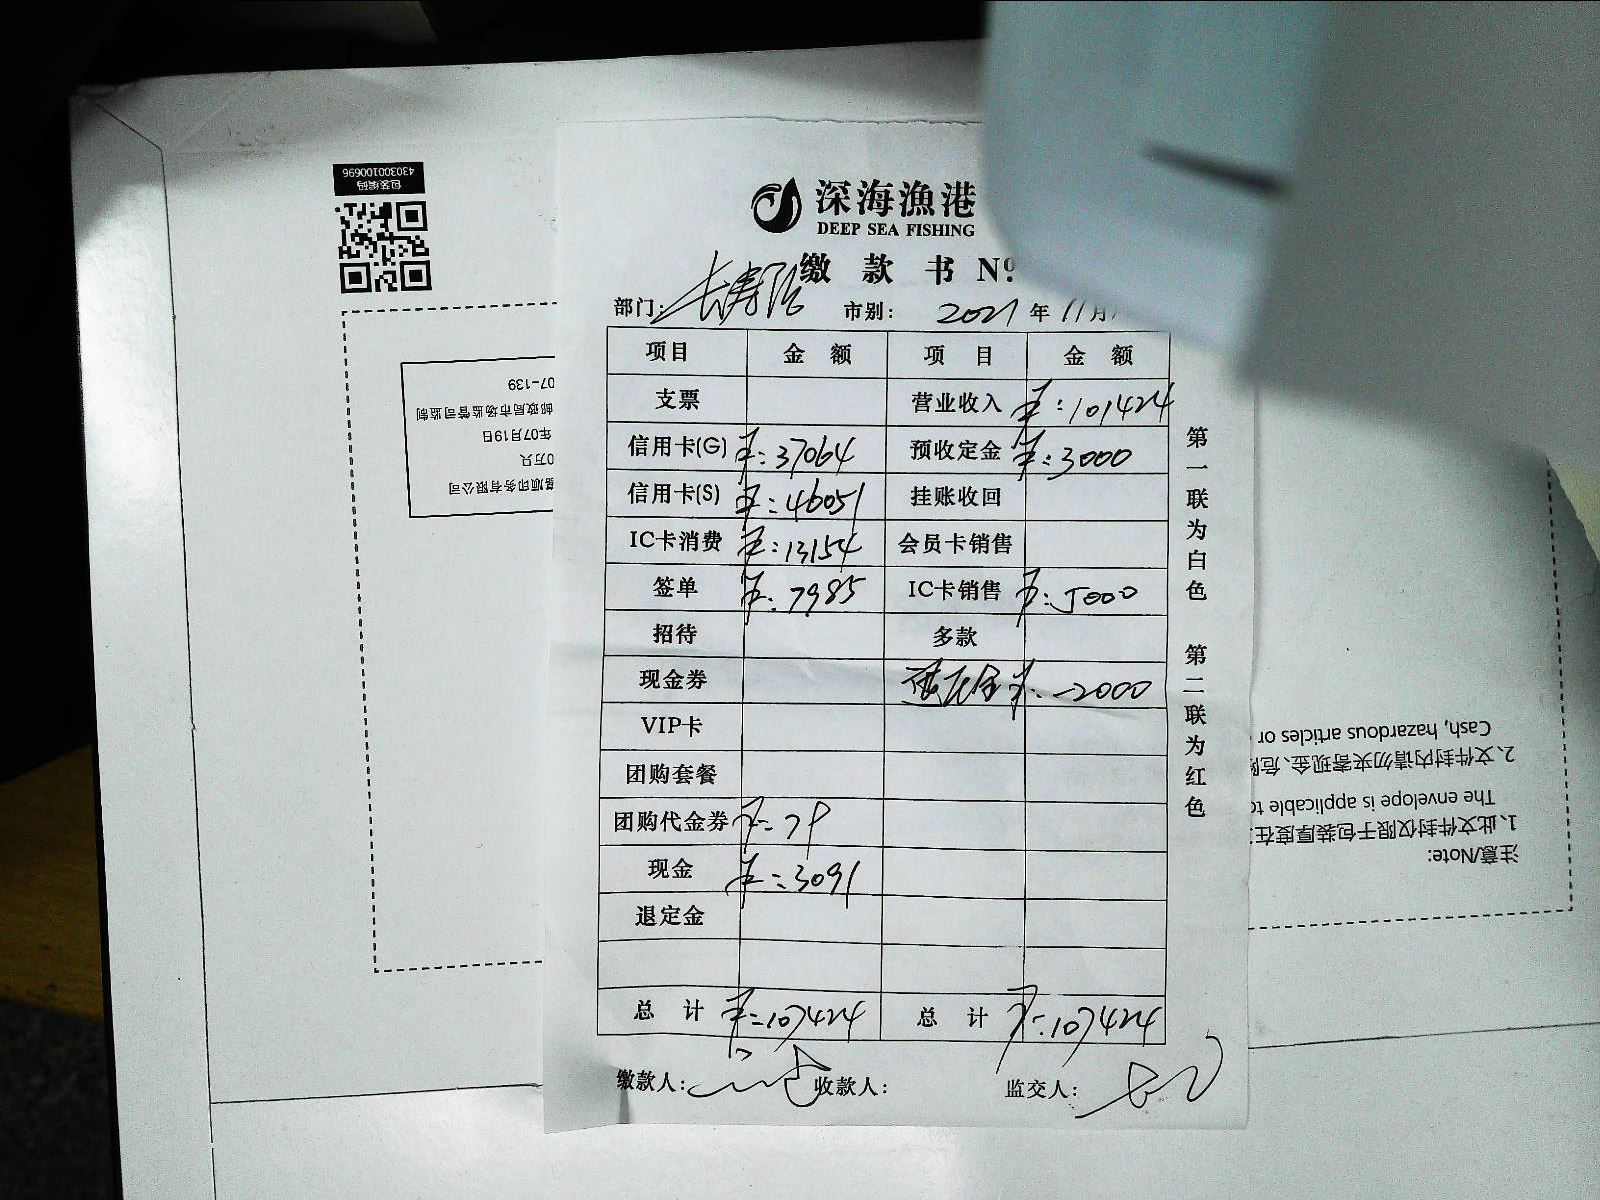 包装编码
430300100696
深海渔港
DEEP SEA FISHING
缴 款 书 Nº
部门: 长寿路 市别: 2021 年 11 月
项目 金 额 项 目 金 额
支票 营业收入 ¥:101424
信用卡(G) ¥:37064 预收定金 ¥:3000
信用卡(S) ¥:46051 挂账收回
IC卡消费 ¥:13154 会员卡销售
签单 ¥:7985 IC卡销售 ¥:5000
招待 多款
现金券 退定金 ¥:-2000
VIP卡
团购套餐
团购代金券 ¥:79
现金 ¥:3091
退定金
总 计 ¥:107424 总 计 ¥:107424
缴款人: 收款人: 监交人:
第一联为白色 第二联为红色
印务有限公司
0万只
年07月19日
邮政局市场监管司监制
07-139
注意/Note:
1、此文件封仅限于包装厚度在
The envelope is applicable to
2、文件封内请勿夹寄现金、危
Cash, hazardous articles or